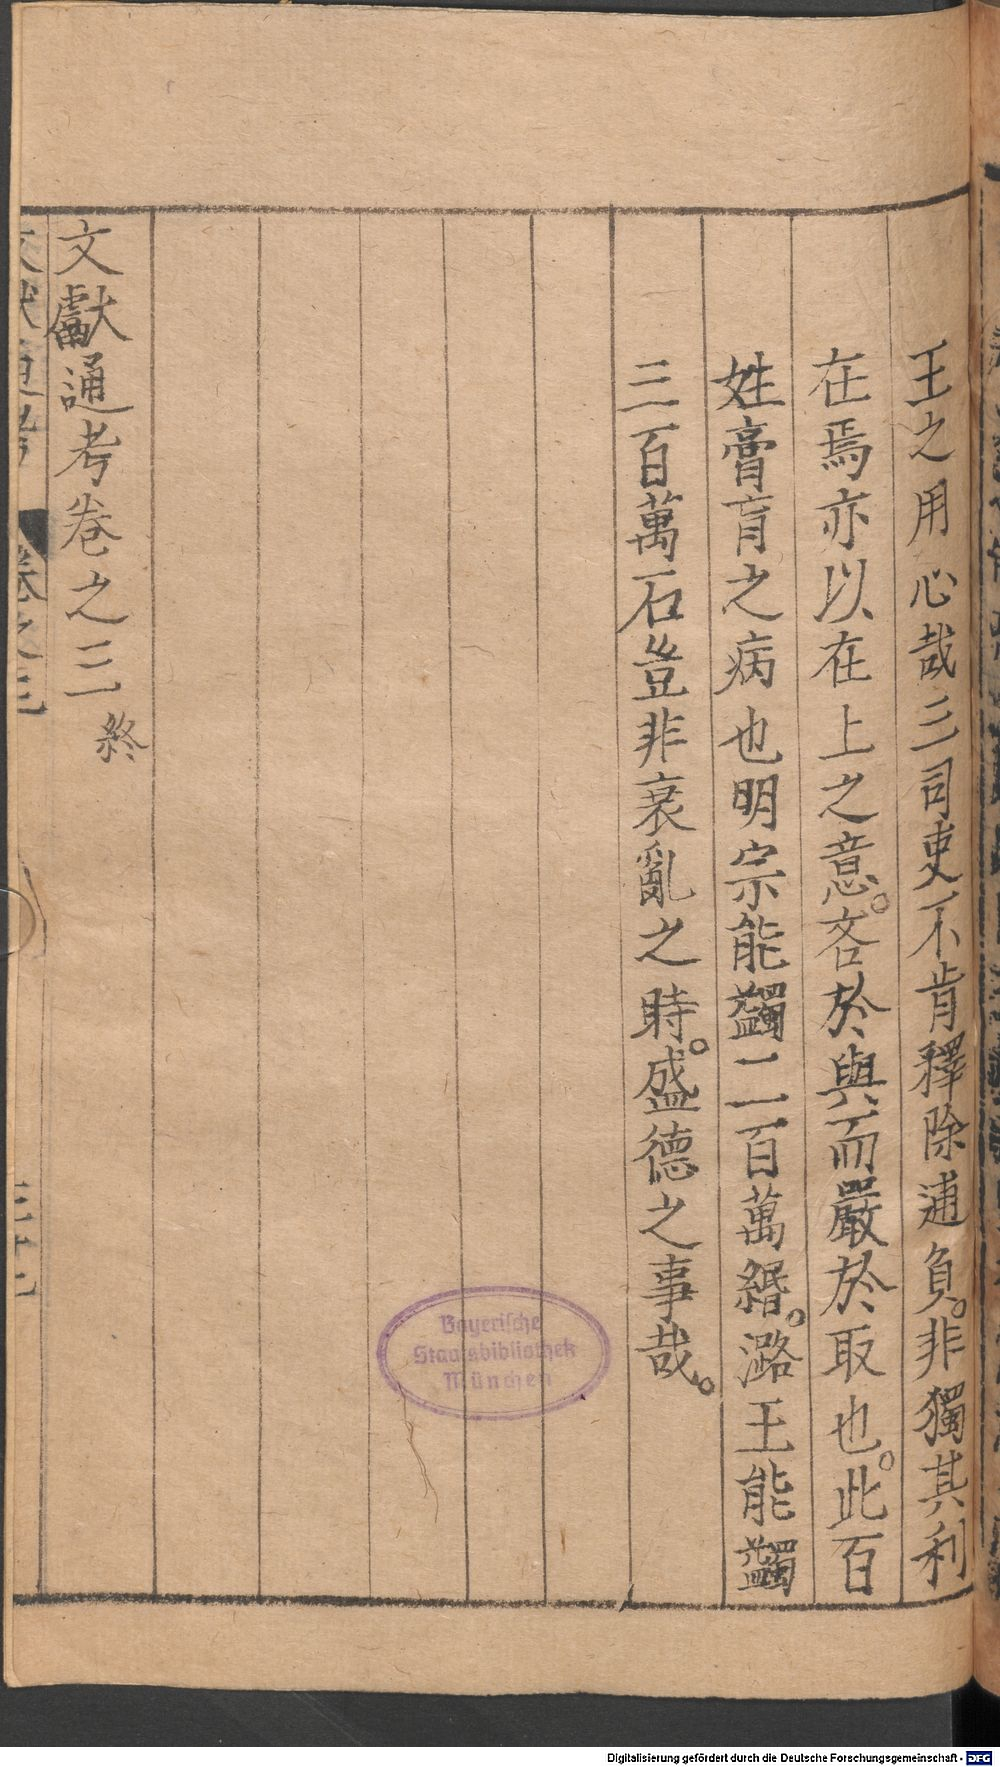 王之用心哉三司吏不肯釋除逋負。非獨其利
在焉亦以在上之意。吝於與而嚴於取也。此百
姓膏肓之病也明宗能蠲二百萬緡。潞王能蠲
三百萬石豈非衰亂之時。盛德之事哉。
文獻通考卷之三 終
Bayerische
Staatsbibliothek
München
Digitalisierung gefördert durch die Deutsche Forschungsgemeinschaft - DFG